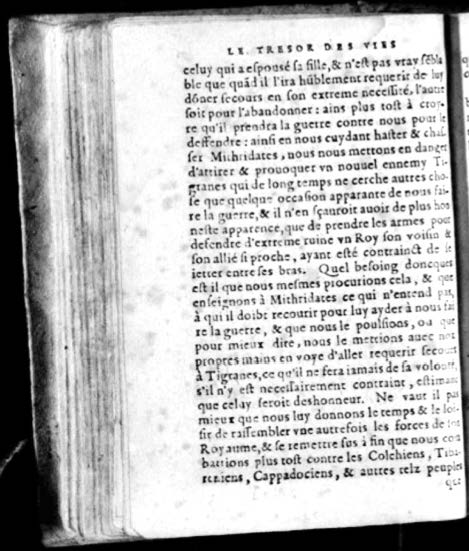 LE TRESOR DES VIES
celuy qui a espousé sa fille, & n'est pas vray sẽbla
ble que quãd il l'ira hũblement requerir de luy
dõner secours en son extreme necessité, l'autre
soit pour l'abandonner: ains plus tost à croy-
re qu'il prendra la guerre contre nous pour le
deffendre: ainsi en nous cuydant haster & chas
ser Mithridates, nous nous mettons en danger
d'attirer & prouoquer vn nouuel ennemy Ti-
granes qui de long temps ne cerche autres cho-
se que quelque occasion apparante de nous fai-
re la guerre, & il n'en sçauroit auoir de plus hon
neste apparence, que de prendre les armes pour
defendre d'extreme ruine vn Roy son voisin &
son allié si proche, ayant esté contrainct de se
ietter entre ses bras. Quel besoing doncques
est il que nous mesmes procurions cela, & que
enseignons à Mithridates ce qui n'entend pas,
à qui il doibt recourir pour luy ayder à nous fai
re la guerre, & que nous le poulsions, ou que
pour mieux dire, nous le mettions auec noz
propres mains en voye d'aller requerir secours
à Tigranes, ce qu'il ne fera iamais de sa volonté,
s'il n'y est necessairement contraint, estimant
que celay seroit deshonneur. Ne vaut il pas
mieux que nous luy donnons le temps & le loi-
sir de rassembler vne autrefois les forces de son
Royaume, & se remettre sus à fin que nous com
battions plus tost contre les Colchiens, Tiba-
reniens, Cappadociens, & autres telz peuples
que